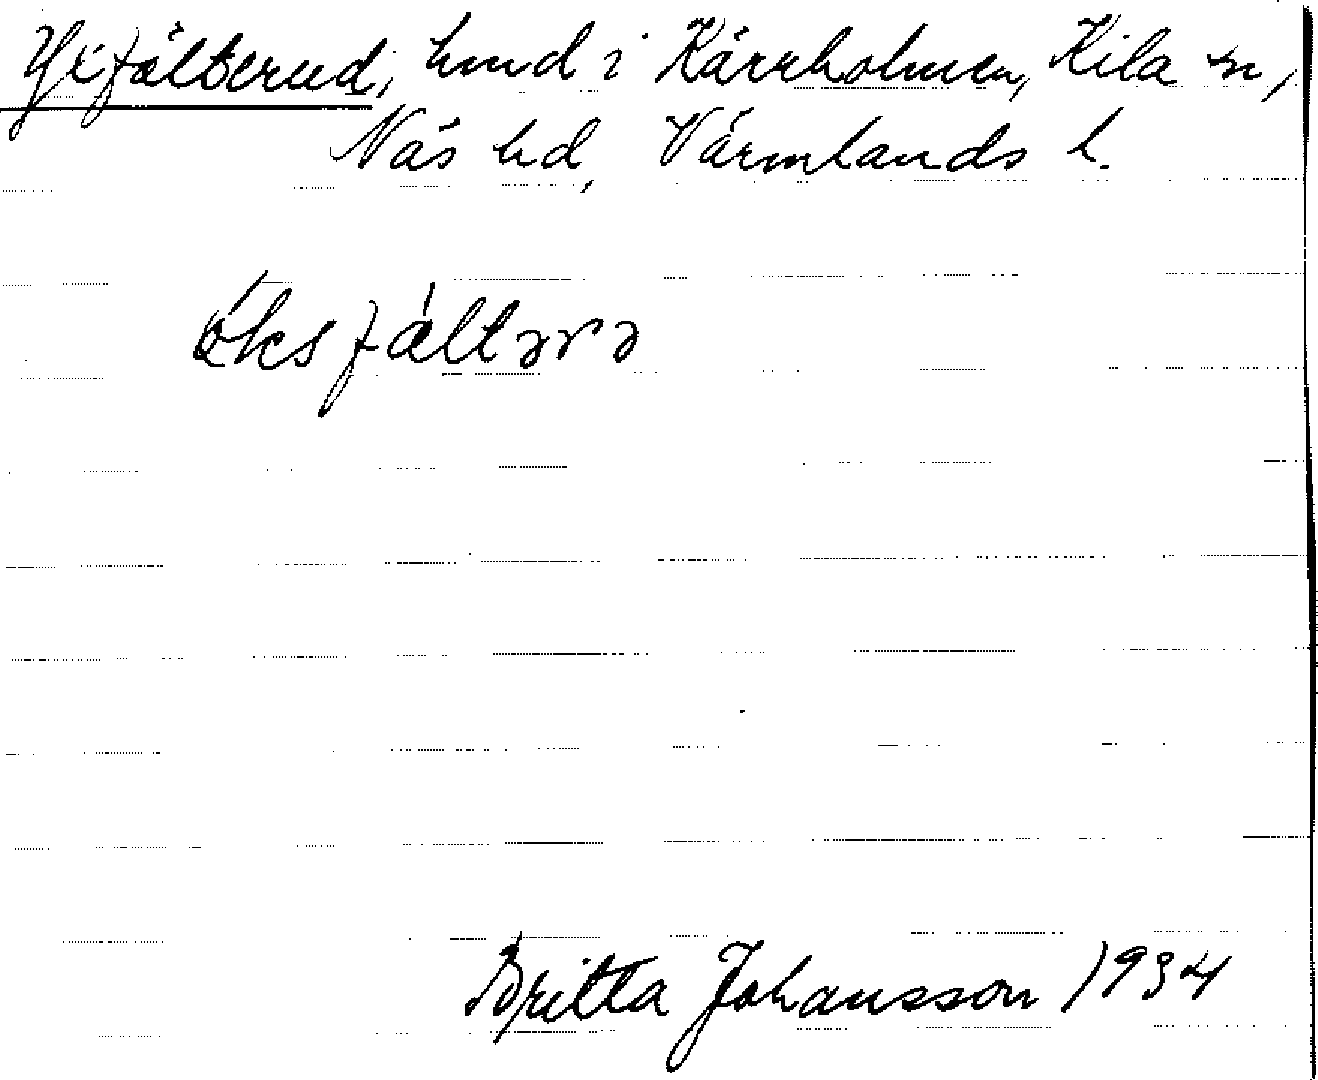 Yxfälterud, hmd i Kärrholmen, Kila sn,
Näs hd, Värmlands l.
Britta Johansson 1934